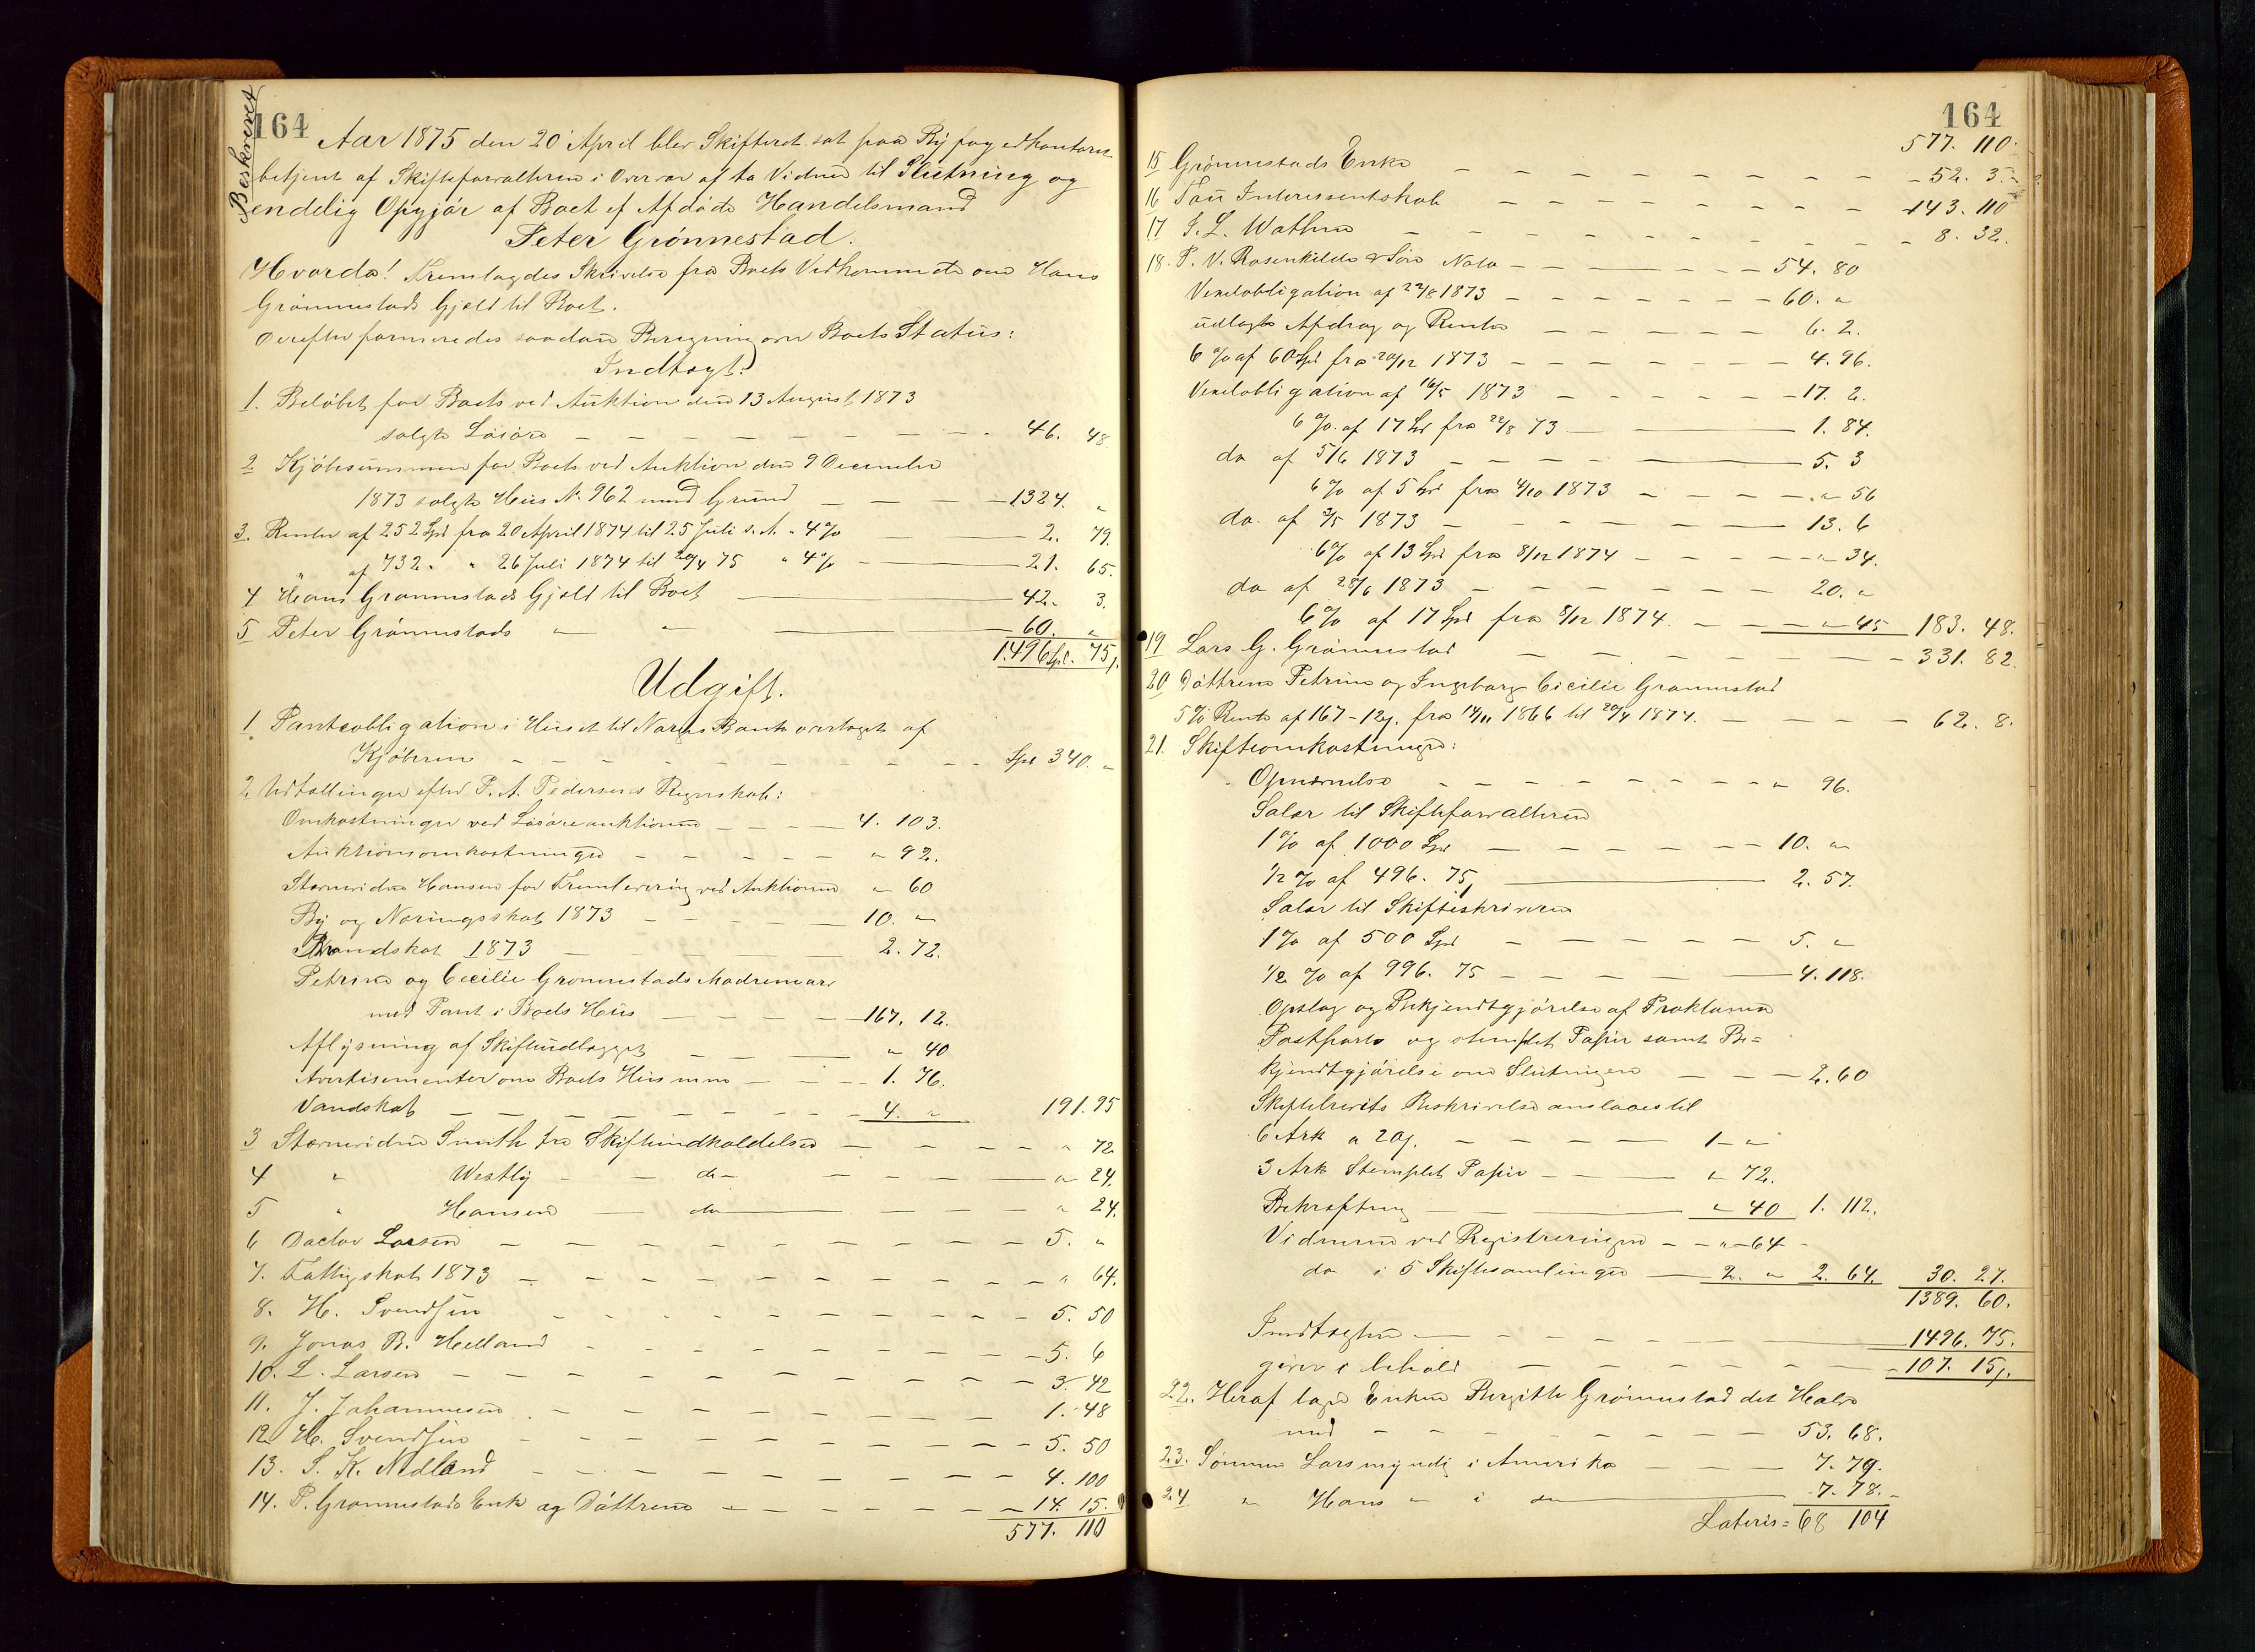 Beskrevet
164
Aar 1875 den 20 April blev Skifteret sat paa Byfogedkontoret
betjent af Skifteforvalteren i Overvær af to Vidner til Slutning og
endelig Opgjør af Boet ef Afdøde Handelsmand
Peter Grønnestad.
Hvorda! Fremlagdes Skrivelse fra Boets Vedkommende om Hans
Grønnestads Gjæld til Boet.
Derefter formeredes saadan Beregning over Boets Status:
Indtægt.
1. Beløbet for Boets ved Auktion den 13 August 1873
solgte Løsøre — — — — — 46. 48
2 Kjøbesummen for Boets ved Auktion den 9 December
1873 solgte Hus N. 962 med Grund — — — 1324. "
3. Renter af 252 Spd fra 20 April 1874 til 25 Juli s. A. a 4% — 2. 79.
" af 732 " " 26 Juli 1874 til 20/4 75 " 4% — 21. 65.
4 Hans Grønnestads Gjæld til Boet — 42. 3.
5 Peter Grønnestads " " — 60. "
1496 Spd. 75 ƒ.
Udgift.
1. Panteobligation i Huset til Norges Bank overtaget af
Kjøberen — — — — Spd 340. "
2. Udtællinger efter P. A. Pedersens Regnskab:
Omkostninger ved Løsøreauktionen — — — 4. 103.
Auktionsomkostninger — — — — " 92.
Stævnevidne Hansen for Fremlevering ved Auktionen " 60
By og Næringsskat 1873 — — — — 10. "
Brandskat 1873 — — — 2. 72.
Petrine og Cecilie Grønnestads Mødrenearv
med Pant i Boets Hus — — — — 167. 12.
Aflysning af Skifteudlægget — — — " 40
Avertisementer om Boets Hus m m — — — 1. 76.
Vandskat — — — — — 4. " 191. 95
3 Stævnevidne Smith for Skifteindkaldelsen — — — " 72
4 " Westly — do — — — — " 24.
5 " Hansen — do — — — " 24.
6 Doctor Larsen — — — — — 5. "
7. Fattigskat 1873 — — — — — " 64.
8. H. Svendsen — — — — — 5. 50
9. Jonas B. Helland — — — — — 5. 6
10. L. Larsen — — — — — 3. 42
11. J. Johannesen — — — — — 1. 48
12 H. Svendsen — — — — — 5. 50
13. S. K. Nedland — — — — — 4. 100
14. P. Grønnestads Enke og Døttrene — — — — 14. 15.
577. 110
164
577. 110.
15 Grønnestads Enke — — — — — 52. 3.
16 Tou Interessentskab — — — — — 143. 110
17 J. L. Wathne — — — — — 8. 32.
18. P. V. Rosenkilde & Søn Nota — — — — 54. 80
Vexelobligation af 22/8 1873 — — — — 60. "
udlagte Afdrag og Renter — — — — 6. 2.
6 % af 60 Spd fra 20/12 1873 — — — — 4. 96.
Vexelobligation af 16/5 1873 — — — — 17. 2.
6 % af 17 Spd fra 22/8 73 — — 1. 84.
do af 5/6 1873 — — — — 5. 3
6 % af 5 Spd fra 4/10 1873 — — — " 56
do. af 3/5 1873 — — — — 13. 6
6 % af 13 Spd fra 8/12 1874 — — — " 34.
do af 28/6 1873 — — — — 20. "
6 % af 17 Spd fra 8/12 1874. — — — " 45 183. 48.
19 Lars G. Grønnestad — — — — — 331. 82.
20 Døttrene Petrine og Ingeborg Cicilie Grønnestad
5 % Rente af 167 - 12 ƒ. fra 14/11 1866 til 20/4 1874. — — — 62. 8.
21. Skifteomkostninger:
Opnævnelse — — — — — " 96.
Salær til Skifteforvalteren
1 % af 1000 Spd — — — — 10. "
1/2 % af 496. 75 ƒ — 2. 57.
Salær til Skifteskriveren
1 % af 500 Spd — — — — 5. "
1/2 % af 996. 75 — — — — 4. 118.
Opslag og Bekjendtgjørelse af Proklama
Postporto og stemplet Papir samt Be=
kjendtgjørelse om Slutningen — — — 2. 60
Skiftebrevets Beskrivelse anslaaes til
6 Ark a 20 ƒ. — — — — 1 — "
3 Ark Stemplet Papir — — — " 72.
Bekræftning — — " 40 1. 112.
Vidnerne ved Registreringen — — " 64 —
do i 5 Skiftesamlinger — 2. " 2. 64. 30. 27.
1389. 60.
Indtægten — — — — — 1496. 75.
giver i behold — — — — — 107. 15 ƒ.
22. Heraf tager Enken Bergitte Grønnestad det Halve
med — — — — — 53. 68.
23. Sønnen Lars myndig i Amerika — — — 7. 79.
24 " Hans " i do — 7. 78.
Lateris = 68 104